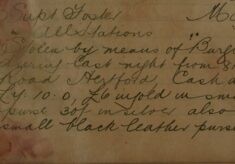 Supt Foster
All Stations
Stolen by means of "Burg
during last night from 3
Road Hertford Cash a
£7. 10. 0, £6 in gold in sm
purse 30/- in silver also
small black leather purse